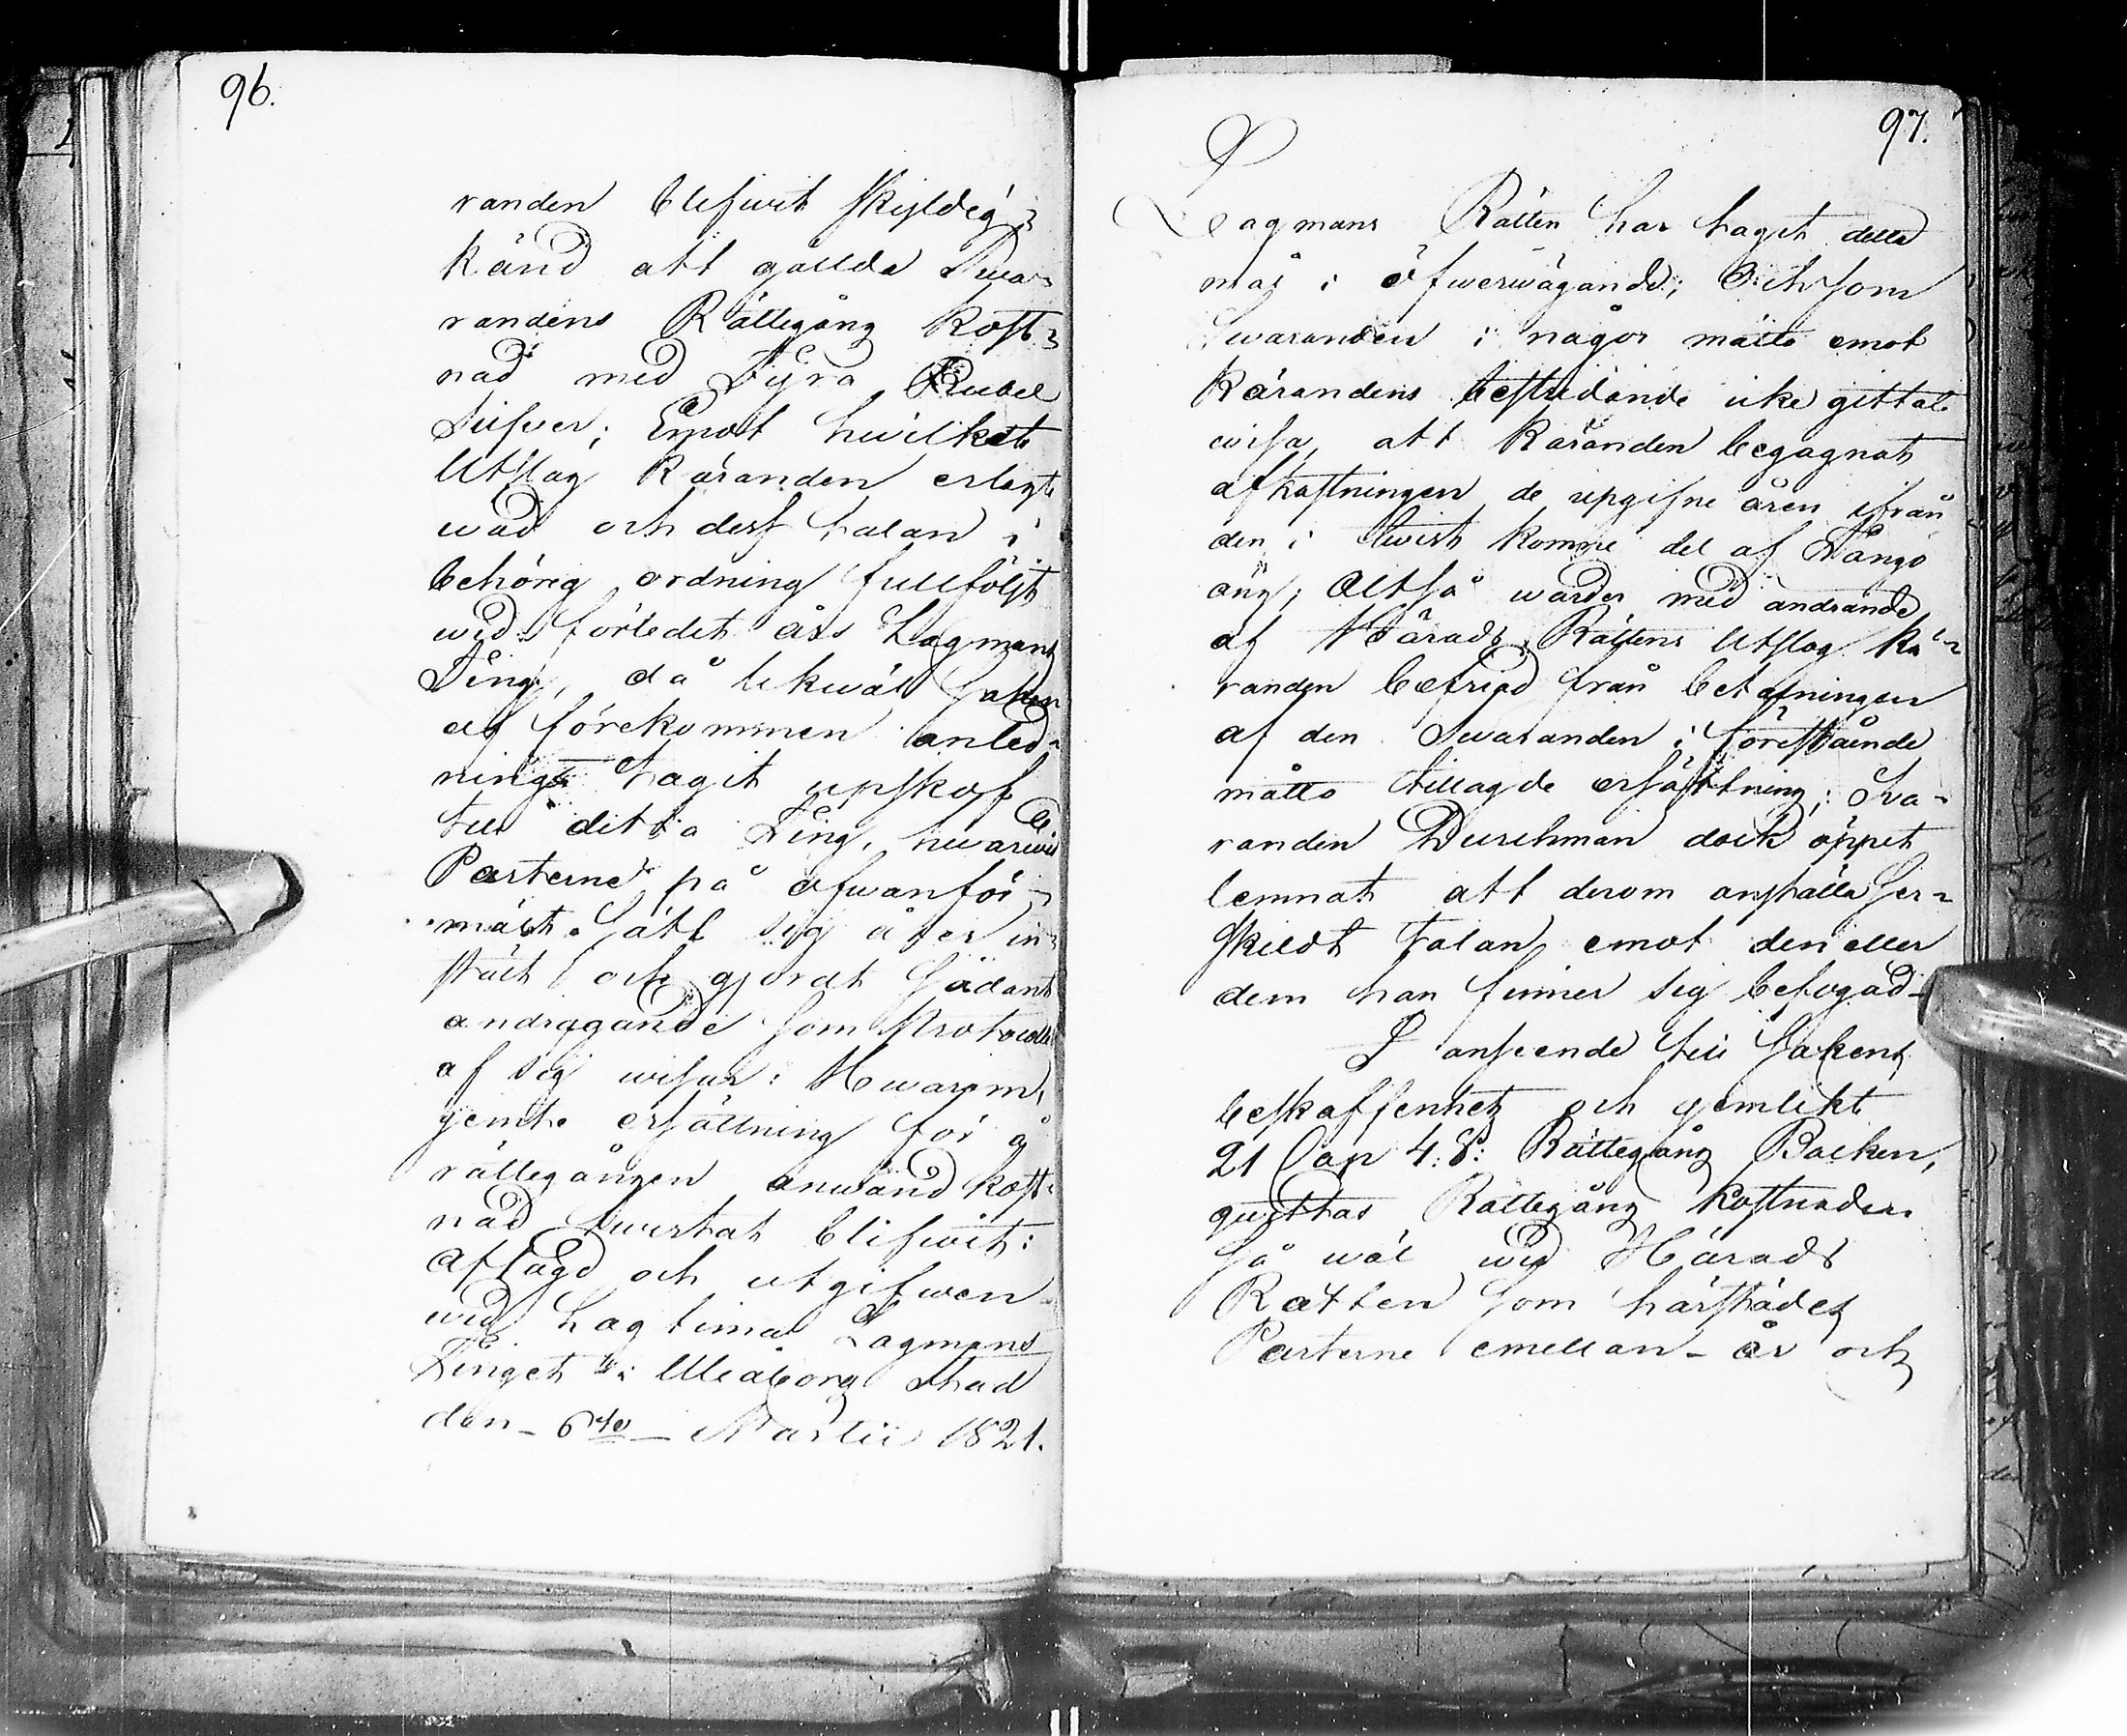 96.
randen blifwit skyldig
känd att gällda Swa-
randens Rättegång kost-
nad med Fyra Rubel
Silfver; Emot hwilket
Utslag käranden erlagt
wad och dess talan i
behörig ordning fullföljt
wid förledet års Lagmans
Ting, då likwäl saken
af förekommen anled-
ning tagit upskof
till detta Ting, hwarwid
Parterne på ofwanför-
mält sätt sig åter in-
stält och gjordt sådant
andragande som Protocollet
af sig wisar: Hwarom,
jemte ersättning för å
rättegången anwänd kost-
nad twistat blifwit:
Afsagd och utgifwen
wid Lagtima Lagmans
Tinget i Uleåborg stad
den 6te Martii 1821.
97.
Lagmans Rätten har tagit detta
mål i öfwerwägande; Och som
Swaranden i någor måtto emot
Kärandens bestridande icke gittat
wisa, att Käranden begagnat
afkastningen de upgifne åren ifrån
den i twist komne del af Långö
äng; Altså warder med ändrande
af Härads Rättens Utslag kä-
randen befriad från betalningen
af den Swaranden i förestående
måtto tillagde ersättning; Swa-
randen Durchman dock öppet
lemnat att derom anställa sär-
skildt talan emot den eller
dem han finner sig befogad
I anseende till sakens
beskaffenhet och jemlikt
21 Cap 4. §: Rättegång Balken,
quittas Rättegång kostnaden
så wäl wid Härads
Rätten som härstädes
Parterne emellan - år och